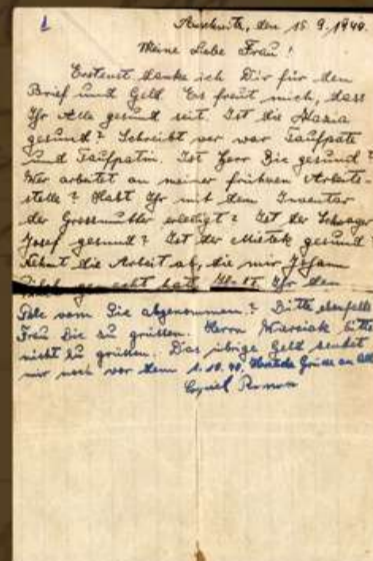 1
Auschwitz, den 15.9.1940.
Meine Liebe Frau!
Erstenst danke ich Dir für den
Brief und Geld Es freut mich, dass
Ihr Alle gesund seit. Ist die
gesund? Schreibt wer war Taufpate
und Taufpatin. Ist Herr Bic gesund?
Wer arbeitet an meiner frühren Arbeits-
stelle? Habt Ihr mit dem Inventar
der Grossmutter erledigt? Ist der Schwager
Josef gesund? Ist der Mietek gesund?
die Arbeit ab, die mir Johann
hat, Ihr den
vom Bic abgenommen? Bitte ebenfalls
Frau Bic zu grüssen. Herrn bitte
nicht zu grüssen. Das übrige Geld sendet
mir noch vor dem 1.10.40. Herzliche Grüsse an Alle
Roman